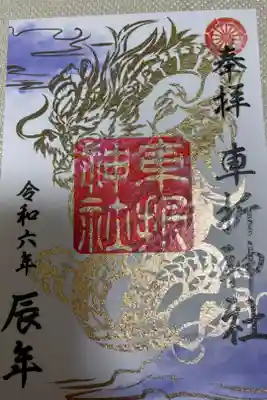 奉拝
車折神社
車折神社
令和六年
辰年